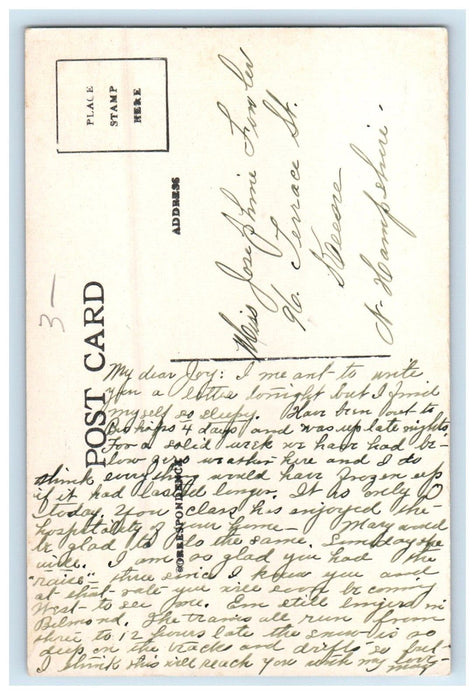 PLACE
STAMP
HERE
ADDRESS
Miss Josephine Fowler
76. Terrace St.
Keene
N. Hampshire.
3-
POST CARD
CORRESPONDENCE
My dear Joy: I meant to write
you a letter tonight but I find
myself so sleepy. Have been out to
4 days and was up late nights
For a solid week we have had be-
low zero weather here and I do
think everything would have frozen up
if it had lasted longer. It is only 0
today. Your class has enjoyed the
hospitality of your home - Mary would
be glad to do the same. Someday she
will. I am so glad you had the
"raise" three since I knew you and
at that rate you will soon be coming
West to see me. Em still lingers in
Belmond. The trains all run from
three to 12 hours late the snow is so
deep on the tracks and drifts so bad
I think this will reach you with my love -